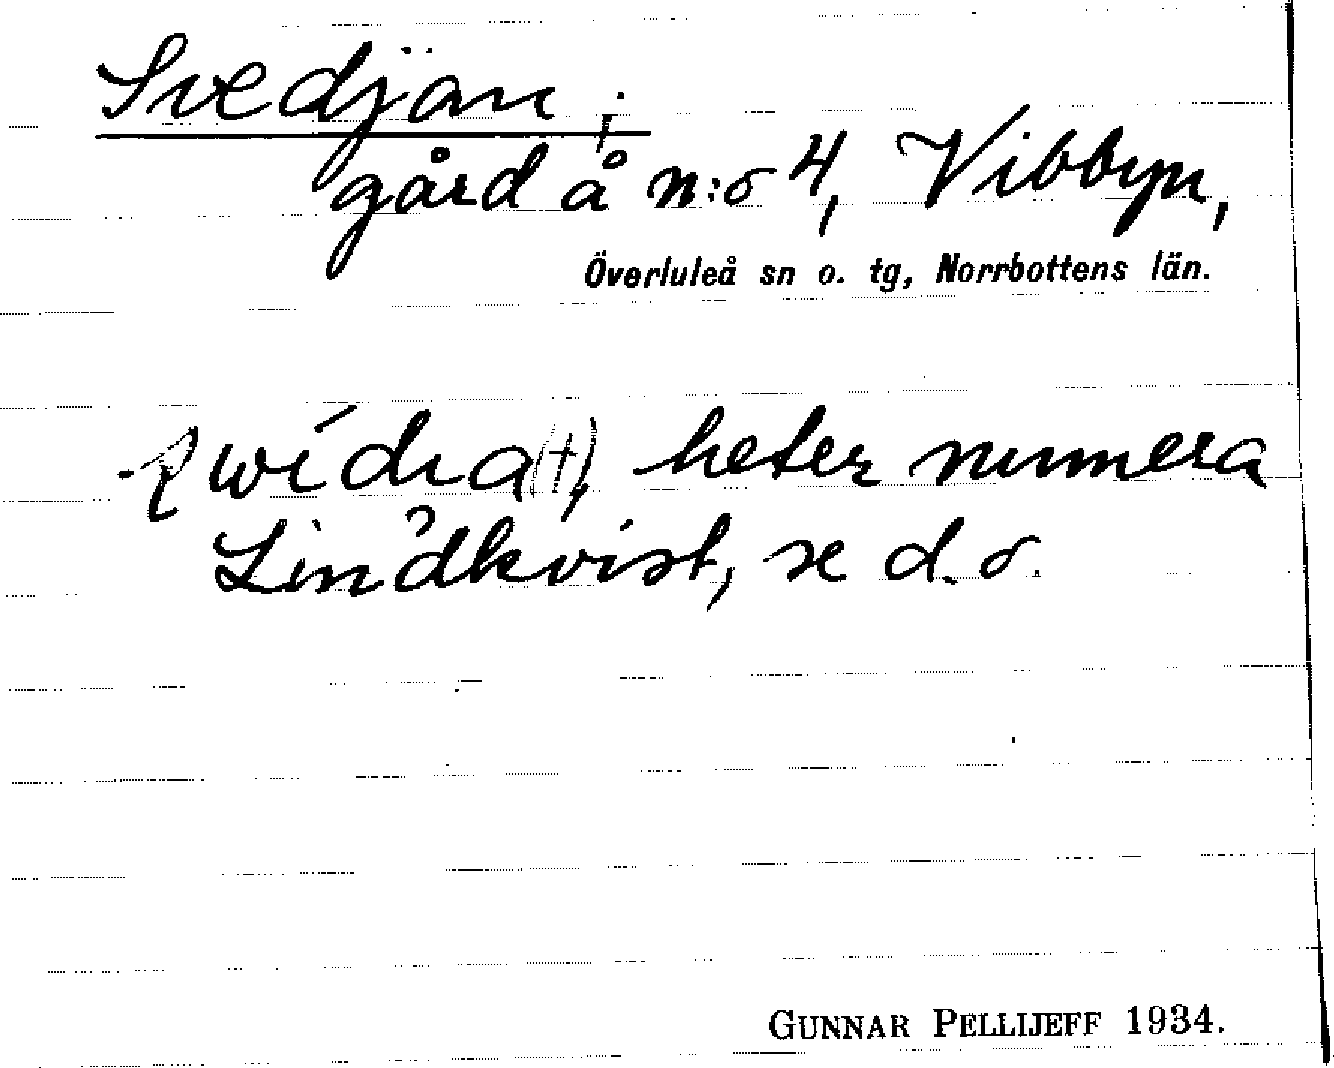 Svedjän,
gård å n:o 4, Vibbyn,
Överluleå sn o. tg, Norrbottens län.
heter numera
Lindkvist, se d. o.
GUNNAR PELLIJEFF 1934.